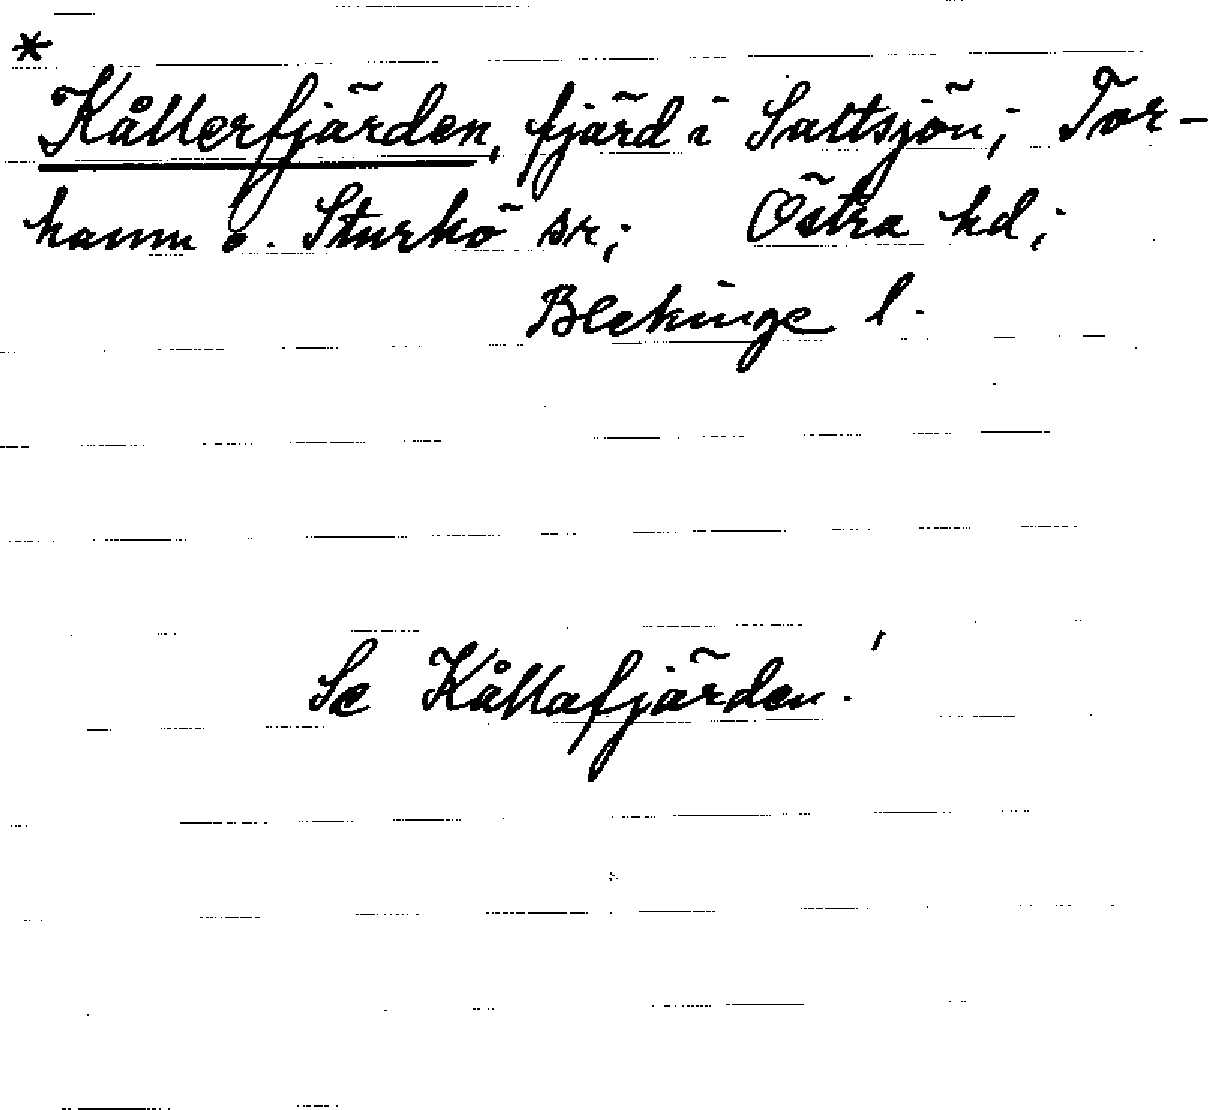 *
Kållerfjärden, fjärd i Saltsjön; Tor-
hamn o. Sturkö sr; Östra hd;
Blekinge l.
Se Kållafjärden!